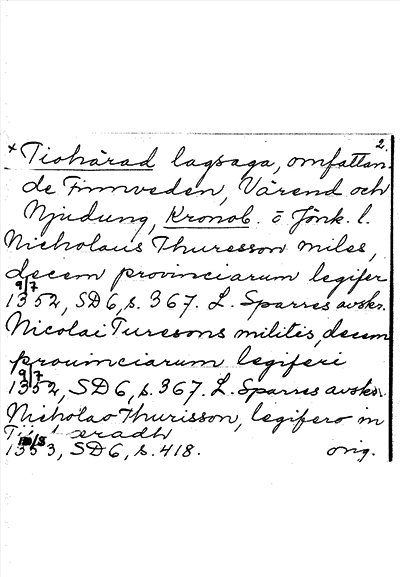 2.
× Tiohärad lagsaga, omfattan-
de Finnveden, Värend och
Njudung, Kronob. o Jönk. l.
Nicholaus Thuresson miles,
decem provinciarum legifer
9/7
1352, SD 6, s. 367. L. Sparres avskr.
Nicolai Turesons militis, decem
prouinciarum legiferi
9/7
1352, SD 6, s. 367. L. Sparres avskr.
Nicholao Thurisson, legifero in
1353, SD 6, s. 418. orig.